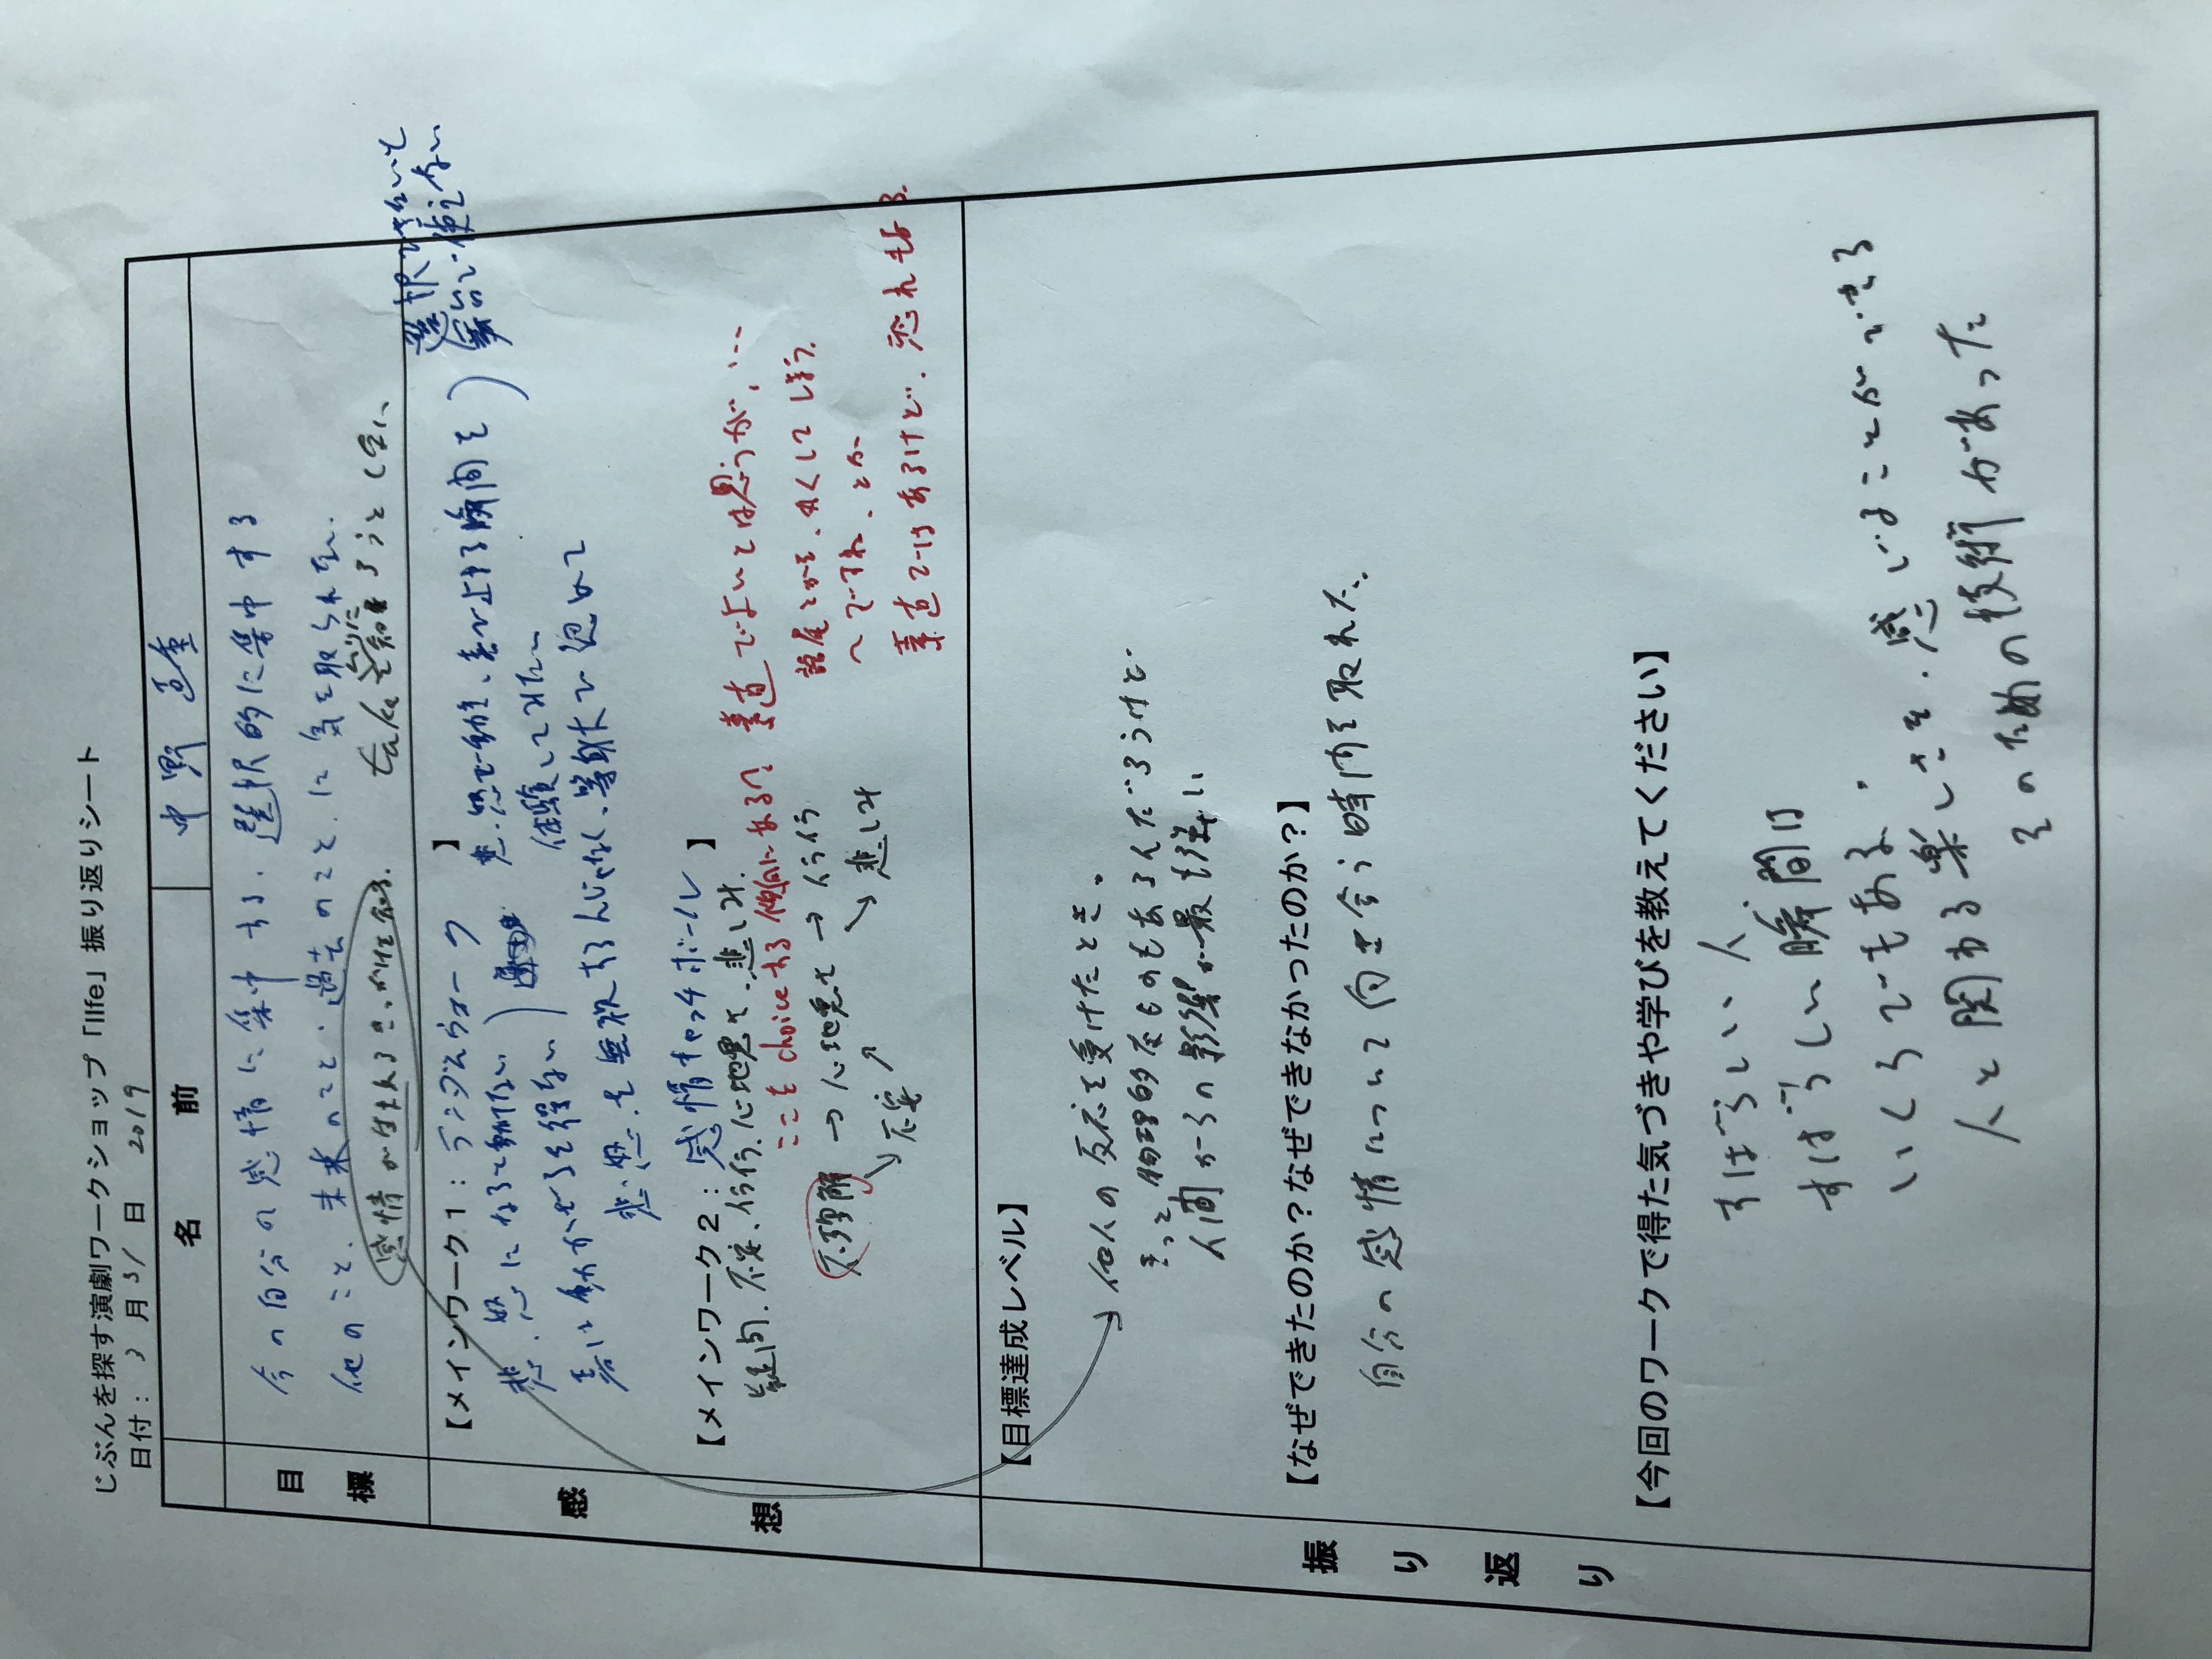 じぶんを探す演劇ワークショップ「life」振り返りシート
日付： 3 月 31 日 2019
名 前 中野
目標
今の自分の感情に集中する．選択的に集中する
他のこと、未来のこと・過去のこと．に気を取られない．
感情が生まれるさ、が生
感想
【メインワーク1：ランダムウォーク 】
悲・怒になるで動けない
悲・怒で動き、楽が止まる瞬間を
体験してみたい
楽に動かせるを得ない
悲・怒を無視するんじゃなく、等身大で認めて
選択できないと
楽しいで使えない
【メインワーク2：感情キャッチボール 】
疑問．不安、イライラ．心地悪さ．悲しみ．
ここを choiceする傾向にある!? 素直でよいとは思うが、…
語尾とかを、かくしてしまう．
〜ですね、とか
素直ではあるけど．恐れもある．
不理解 → 心地悪さ → イライラ
不安
悲しみ
振り返り
【目標達成レベル】
他人の反応を受けたとき。
きっと物理的なものもあるんだろうけど
人間からの影響が最も強い
【なぜできたのか？なぜできなかったのか？】
自分の感情について向き合う時間を取れた．
【今回のワークで得た気づきや学びを教えてください】
すばらしい人
すばらしい瞬間は
いくらでもある。
人と関わる楽しさを．感じることができる
そのための技術があった